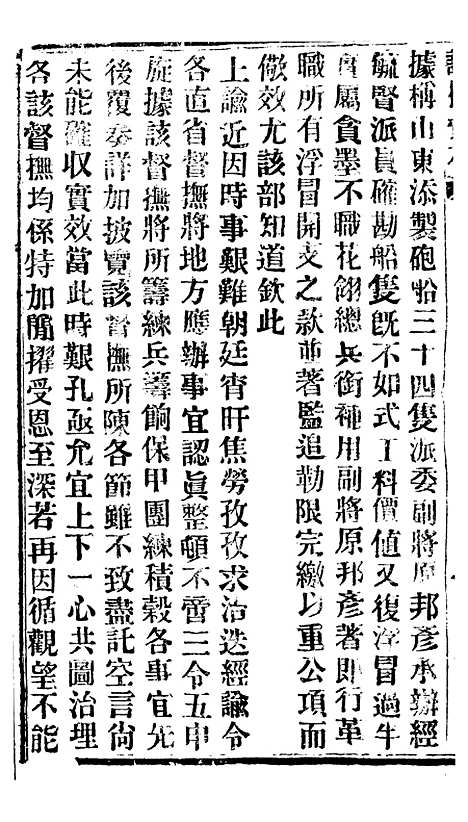 據稱山東添製砲船三十四隻派委副將原邦彥承辦經
毓賢派員確勘船隻旣不如式工料價值又復浮冒過半
實屬貪墨不職花翎總兵銜補用副將原邦彥著卽行革
職所有浮冒開支之款並著監追勒限完繳以重公項而
儆效尤該部知道欽此
上諭近因時事艱難朝廷宵旰焦勞孜孜求治迭經諭令
各直省督撫將地方應辦事宜認眞整頓不啻三令五申
旋據該督撫將所籌練兵籌餉保甲團練積穀各事宜先
後覆奏詳加披覽該督撫所陳各節雖不致盡託空言尙
未能確収實效當此時艱孔亟允宜上下一心共圖治理
各該督撫均係特加簡擢受恩至深若再因循觀望不能